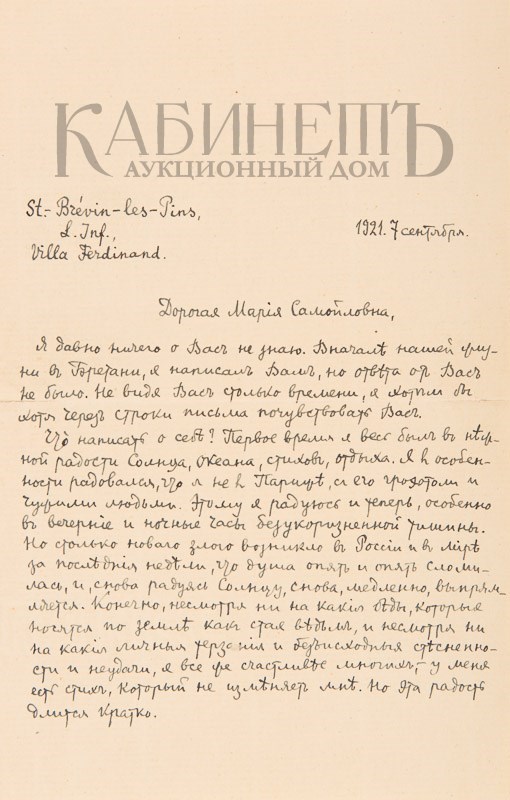 КАБИНЕТЪ
АУКЦИОННЫЙ ДОМ
St.-Brévin-les-Pins,
L. Inf.,
Villa Ferdinand.
1921. 7 сентября.
Дорогая Марія Самойловна,
Я давно ничего о Васъ не знаю. Вначалѣ нашей жиз-
ни въ Бретани, я написалъ Вамъ, но отвѣта отъ Васъ
не было. Не видя Васъ столько времени, я хотѣлъ бы
хотя черезъ строки письма почувствовать Васъ.
Что написать о себѣ? Первое время я весь былъ въ нѣж-
ной радости Солнца, Океана, стиховъ, отдыха. Я въ особен-
ности радовался, что я не въ Парижѣ, съ его грохотомъ и
чужими людьми. Этому я радуюсь и теперь, особенно
въ вечерніе и ночные часы безукоризненной тишины.
Но столько новаго злого возникло въ Россіи и въ мірѣ
за послѣднія недѣли, что душа опять и опять сломи-
лась, и, снова радуясь Солнцу, снова, медленно, выпрям-
ляется. Конечно, несмотря ни на какія бѣды, которые
носятся по землѣ какъ стая вѣдьмъ, и несмотря ни
на какія личныя терзанія и безъисходныя стѣсненно-
сти и неудачи, я все же счастливѣе многихъ,– у меня
есть стихъ, который не измѣняетъ мнѣ. Но эта радость
длится кратко.